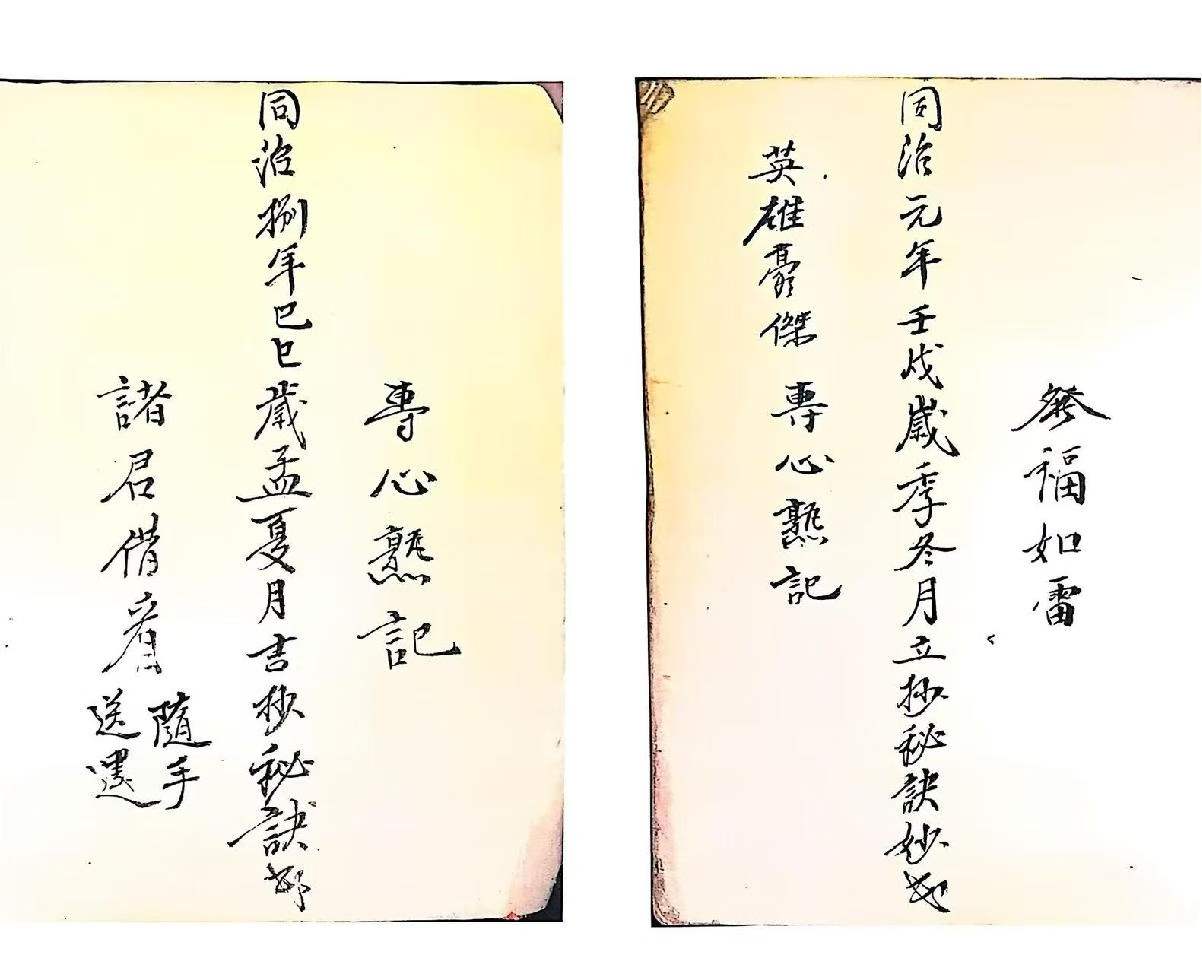 發福如雷
同治元年壬戌歲季冬月立抄秘訣妙
英雄豪傑 專心熟記
專心熟記
同治捌年巳巳歲孟夏月吉抄秘訣
諸君借看
隨手
送還